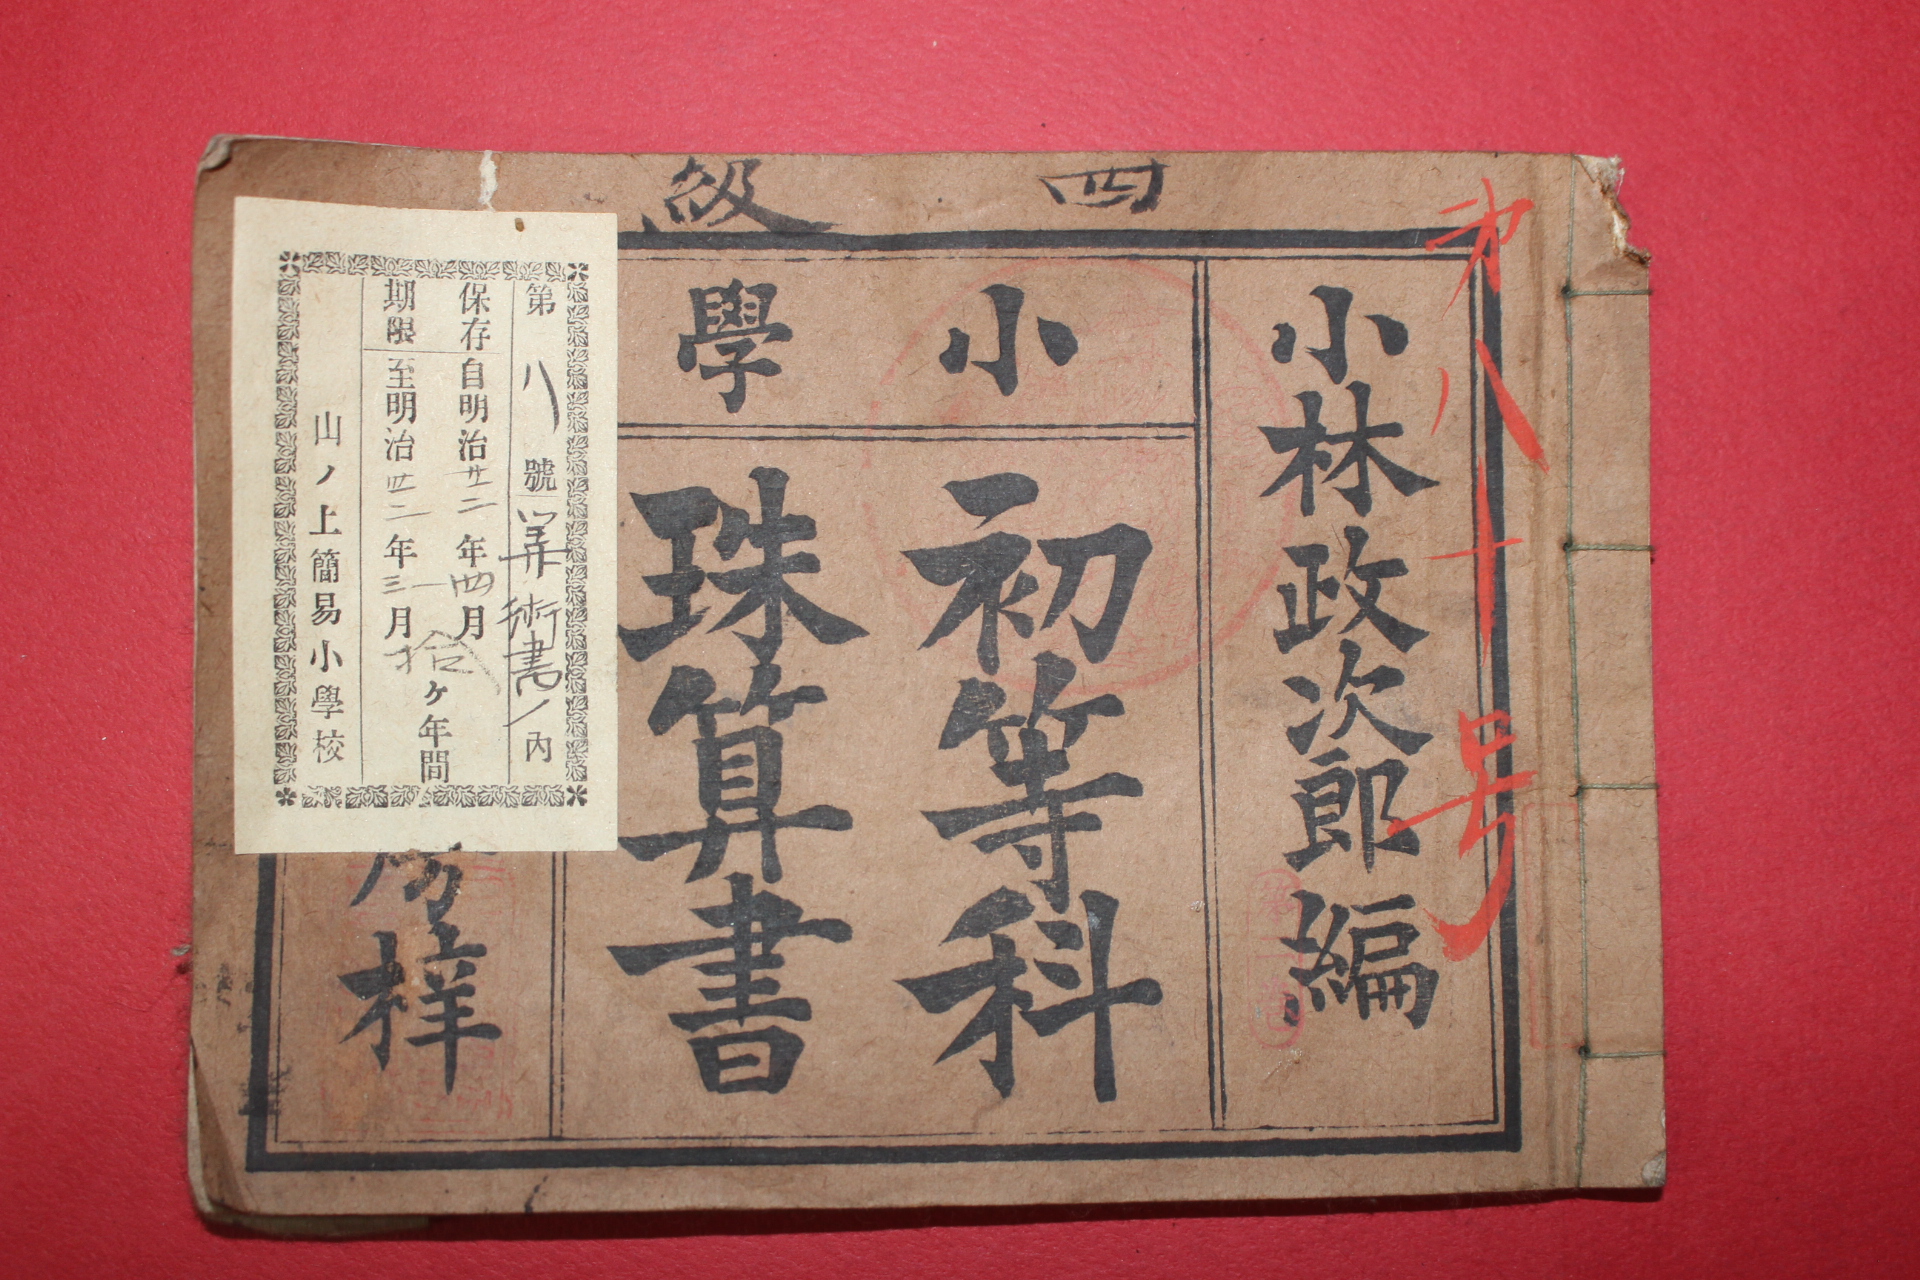 四級
第八十号
小林政次郎編
小學
初等科
珠算書
房梓
第八號 筭術書ノ内
保存 自明治廿二年四月
期限 至明治卅二年三月
拾ヶ年間
山ノ上簡易小學校